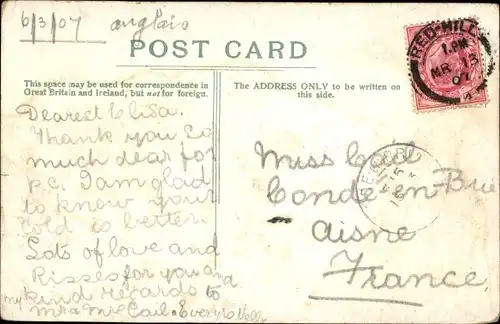 6/3/07 anglais
POST CARD
This space may be used for correspondence in
Great Britain and Ireland, but not for foreign.
The ADDRESS ONLY to be written on
this side.
RED HILL
1. PM
MR 15
07
Dearest Elisa.
Thank you so
much dear for
p.c. I am glad
to know your
cold is better.
Lots of love and
Kisses for you and
my kind regards to
Mr & Mrs Cail.
Miss Cail
Condé-en-Brie
Aisne
France